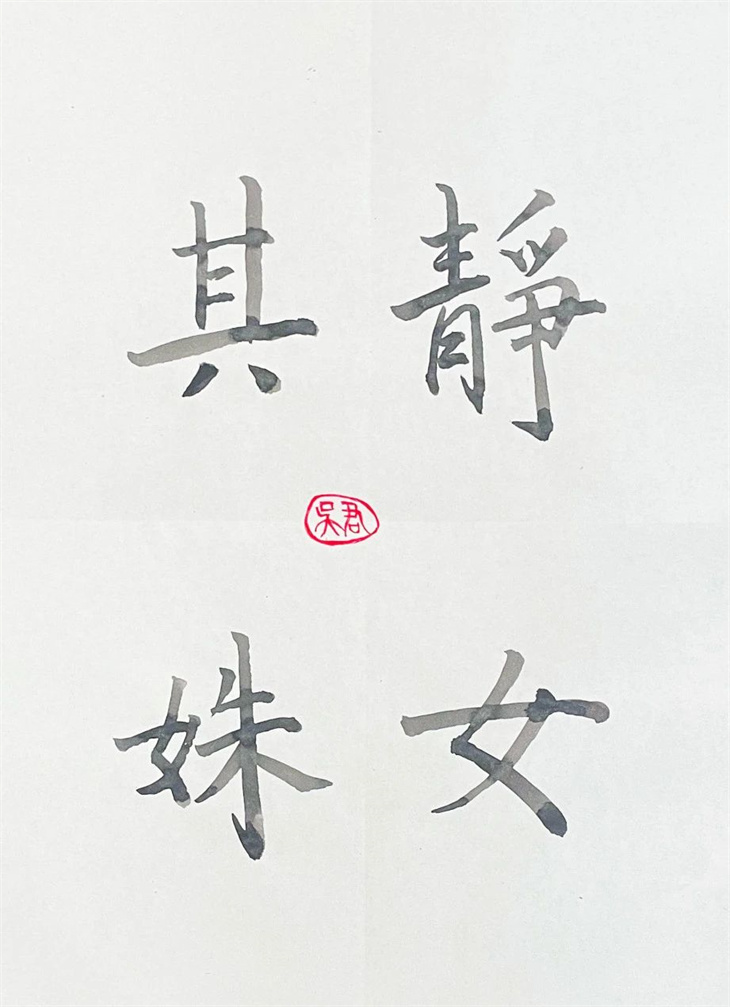 靜女
其姝
吳君